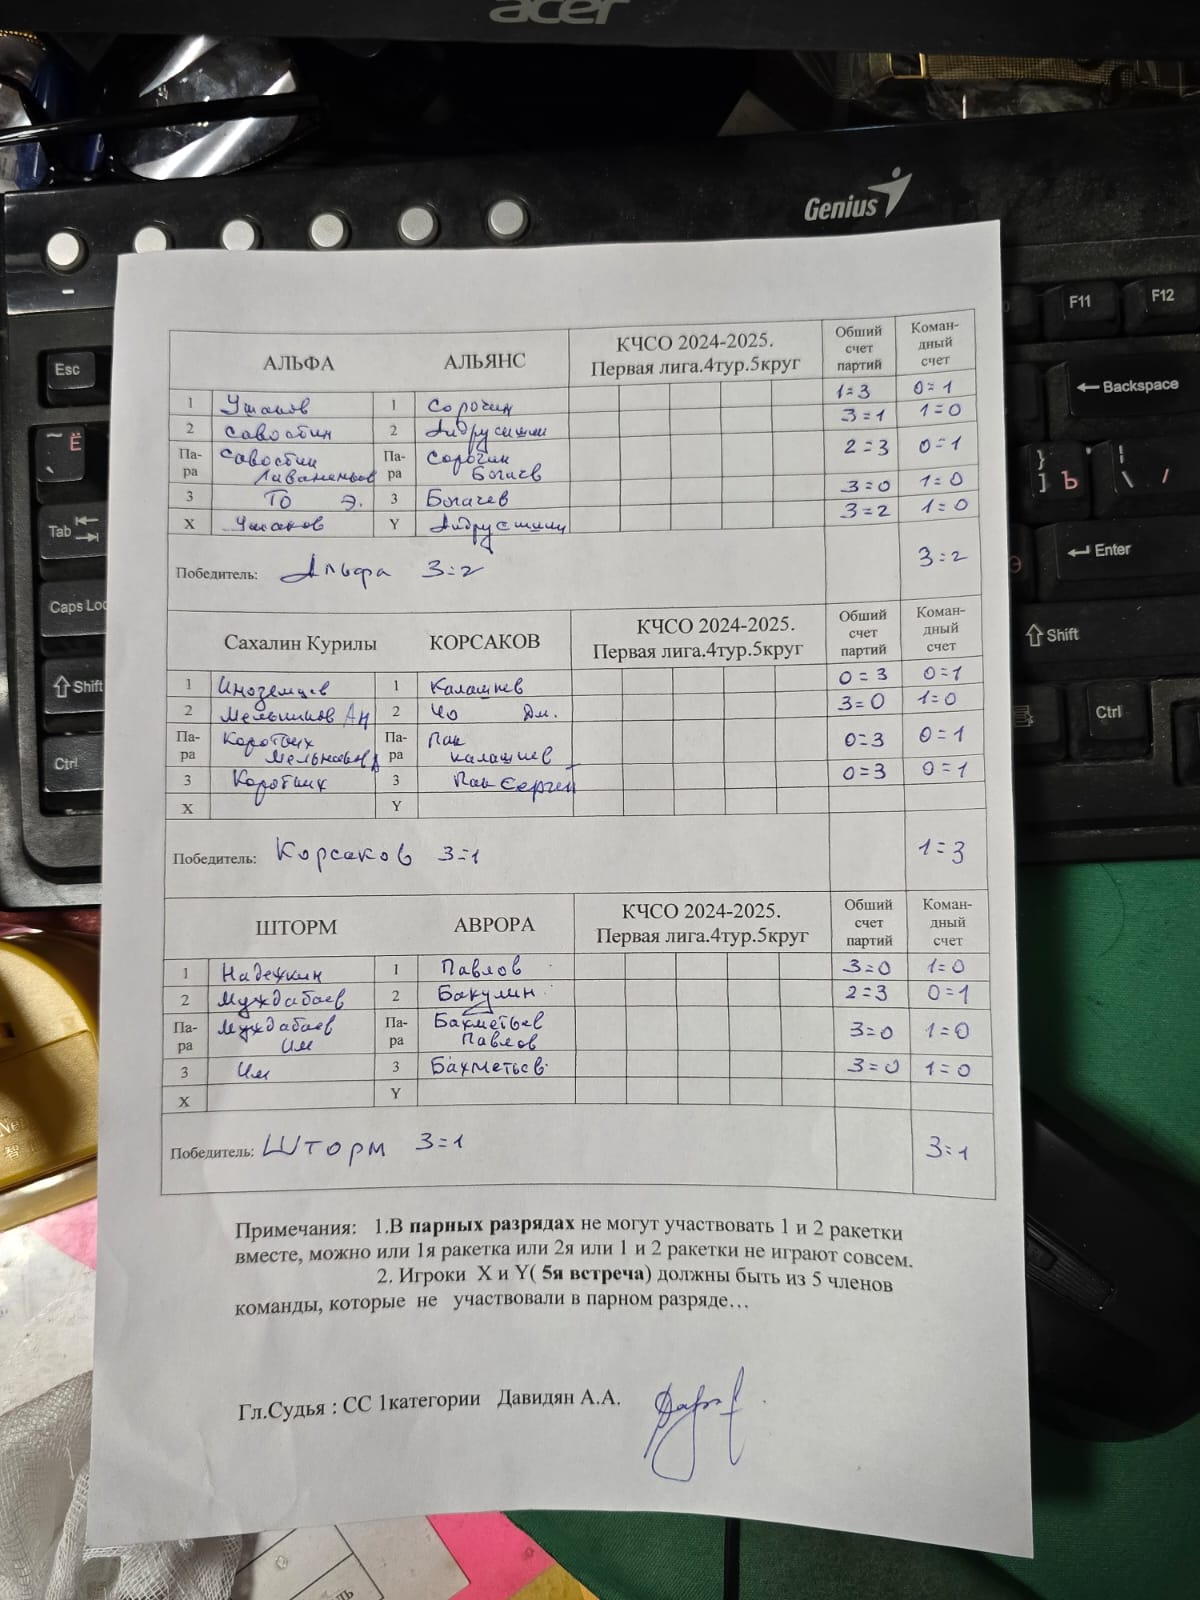 acer
Genius
F11 F12
Esc
Backspace
Ё
Ъ
Tab
Enter
Caps Loc
Shift
Shift
Ctrl
Ctrl
АЛЬФА АЛЬЯНС КЧСО 2024-2025. Первая лига.4тур.5круг Обший счет партий Коман-дный счет
1 Ушаков 1 Сорочин 1=3 0=1
2 Савостин 2 Андрусишин 3=1 1=0
Па-ра Савостин Па-ра Сорочин Богачев 2=3 0=1
3 ТО Э. 3 Богачев 3=0 1=0
X Ушаков Y Андрусишин 3=2 1=0
Победитель: Альфа 3=2 3=2
Сахалин Курилы КОРСАКОВ КЧСО 2024-2025. Первая лига.4тур.5круг Обший счет партий Коман-дный счет
1 Иноземцев 1 Калашнев 0=3 0=1
2 Мельников Ан 2 Чо Дм. 3=0 1=0
Па-ра Коротких Мельников А Па-ра Пак Калашнев 0=3 0=1
3 Коротких 3 Пак Сергей 0=3 0=1
X Y
Победитель: Корсаков 3=1 1=3
ШТОРМ АВРОРА КЧСО 2024-2025. Первая лига.4тур.5круг Обший счет партий Коман-дный счет
1 Надежкин 1 Павлов 3=0 1=0
2 Муждабаев 2 Бакулин 2=3 0=1
Па-ра Муждабаев Им Па-ра Бахметьев Павлов 3=0 1=0
3 Им 3 Бахметьев 3=0 1=0
X Y
Победитель: Шторм 3=1 3=1
Примечания: 1.В парных разрядах не могут участвовать 1 и 2 ракетки
вместе, можно или 1я ракетка или 2я или 1 и 2 ракетки не играют совсем.
2. Игроки X и Y( 5я встреча) должны быть из 5 членов
команды, которые не участвовали в парном разряде…
Гл.Судья : СС 1категории Давидян А.А.